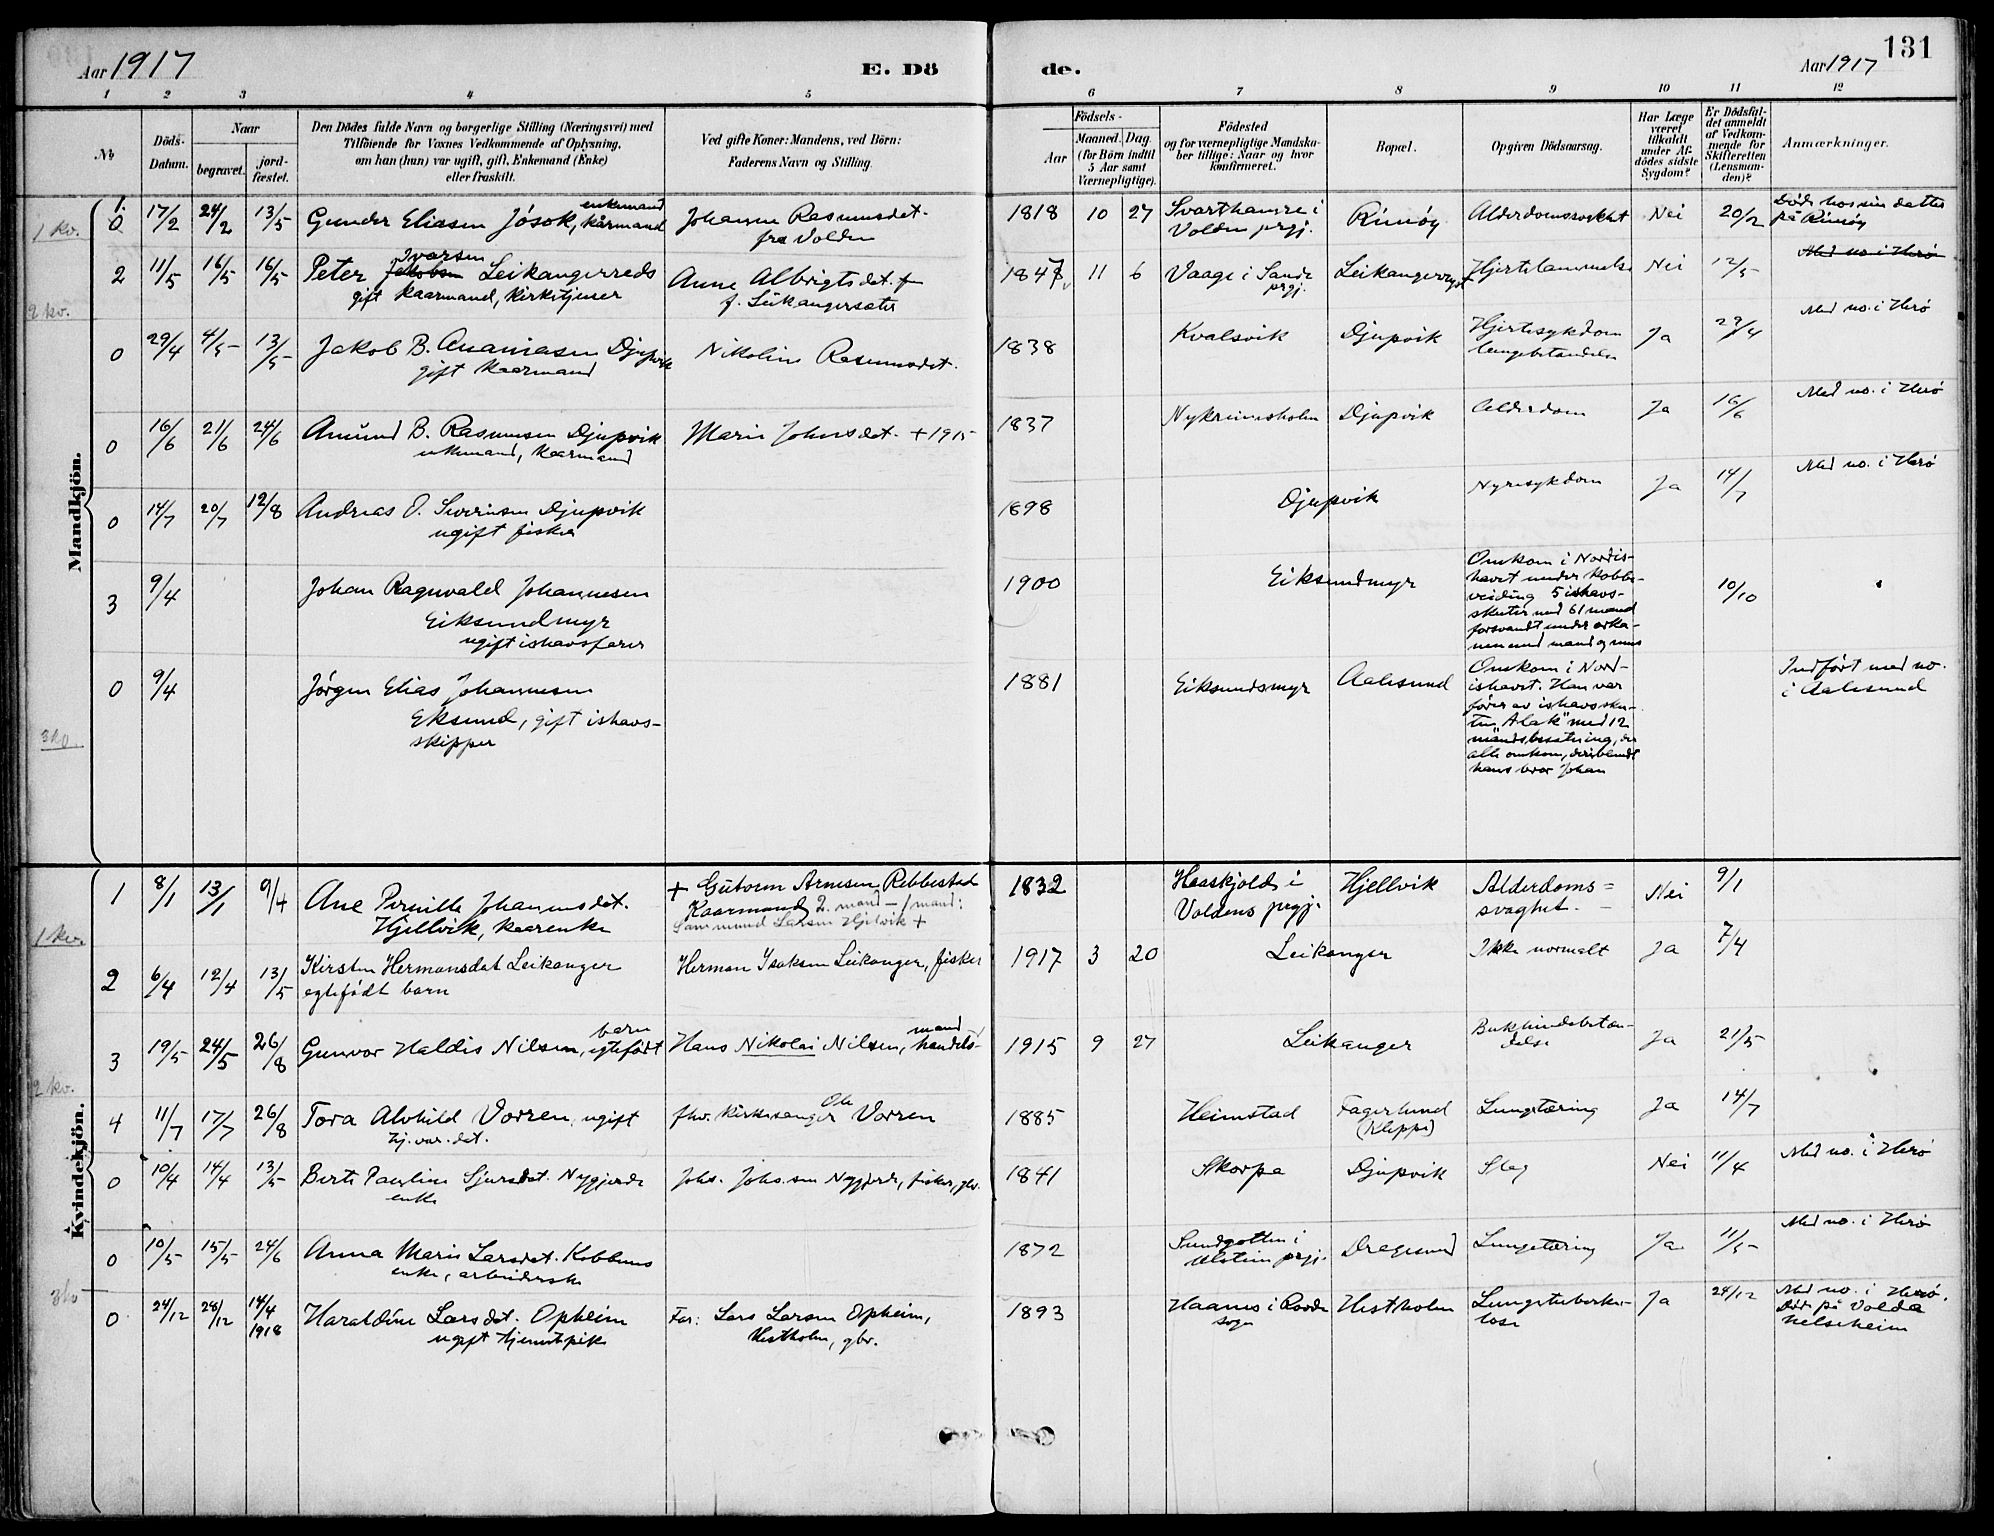 Aar 1917
E. Dö
de.
Aar 1917
131
1 2 3 4 5 6 7 8 9 10 11 12
№
Döds-
Datum.
Naar
begravet.
jord-
fæstet.
Den Dödes fulde Navn og borgerlige Stilling (Næringsvei) med
Tilföiende for Voxnes Vedkommende af Oplysning,
om han (hun) var ugift, gift, Enkemand (Enke)
eller fraskilt.
Ved gifte Koner: Mandens, ved Börn:
Faderens Navn og Stilling.
Födsels-
Aar
Maaned.
Dag.
(for Börn indtil
5 Aar samt
Værnepligtige).
Födested
og for værnepligtige Mandska-
ber tillige: Naar og hvor
konfirmeret.
Bopæl.
Opgiven Dödsaarsag.
Har Læge
været
tilkaldt
under Af-
dödes sidste
Sygdom?
Er Dödsfal-
det anmeldt
af Vedkom-
mende for
Skifteretten
(Lensman-
den)?
Anmærkninger.
Mandkjön.
1 kv.
1.
0 17/2 24/2 13/5 Gunder Eliasen Jøsok, enkemand kårmand
Johanne Rasmusdet.
fra Volden
1818 10 27 Svarthamre i
Volden prgj.
Rimøy Alderdomssvakhet Nei 20/2 Død hos sin datter
på Rimøy
2 11/5 16/5 16/5 Peter Jakobsen Ivarsen Leikangerreds
gift kaarmand, kirketjener
Anne Albrigtsdet.
f. Leikangersæter
1847 11 6 Vaage i Sande
prgj.
Hjertelammelse Nei 12/5 Med no. i Herø
2 kv.
0 29/4 4/5 13/5 Jakob B. Ananiasen Djupvik
gift kaarmand
Nikoline Rasmusdet.
1838 Kvalsvik Djupvik Hjertesykdom
lungebetændelse
Ja 29/4 Med no. i Herø
0 16/6 21/6 24/6 Amund B. Rasmusen Djupvik
enkemand, kaarmand
Marie Johnsdet. + 1915
1837 Nykreimsholm Djupvik Alderdom Ja 16/6 Med no. i Herø
0 14/7 20/7 12/8 Andreas O. Severinsen Djupvik
ugift fisker
1898 Djupvik Nyresykdom Ja 14/7 Med no. i Herø
3 9/4 Johan Ragnvald Johannesen
Eiksundmyr
ugift ishavsfarer
1900 Eiksundmyr Omkom i Nordis-
havet under kobbe-
veiding 5 ishavs-
skuter med 61 mand
forsvandt under orka-
nen med mand og mus
10/10
0 9/4 Jørgen Elias Johannesen
Eksund, gift ishavs-
skipper
1881 Eiksundsmyr Aalesund Omkom i Nord-
ishavet. Han var
fører av ishavssku-
ten "Alak" med 12
mandsbesætning, der
alle omkom, deriblandt
hans bror Johan
Indført med no.
i Aalesund
Kvindekjön.
1 kv.
1 8/1 13/1 9/4 Ane Pernille Johannesdet.
Hjellvik, kaarenke
+ Gutorm Arnesen Rebbestad
Kaarmand 2. mand - 1 mand:
Larsen Hjelvik +
1832 Haaskjold i
Voldens prgj.
Hjellvik Alderdoms=
svaghet. Nei 9/1
2 6/4 12/4 13/5 Kirsten Hermansdat Leikanger
egtefødt barn
Herman Isaksen Leikanger, fisker
1917 3 20 Leikanger Ikke normalt Ja 7/4
3 19/5 24/5 26/8 Gunvor Haldis Nilsen, egtefødt barn
Hans Nikolai Nilsen, handels-
mand
1915 9 27 Leikanger Bukhindebetæn-
delse
Ja 21/5
2 kv.
4 11/7 17/7 26/8 Tora Alvhild Vorren, ugift
hj. vær. det.
fhv. kirkesanger Ole Vorren
1885 Heimstad Fagerlund
(Kleppe)
Lungetæring Ja 14/7
0 10/4 14/4 13/5 Berte Pauline Sjursdat. Nygjerde
enke
Johs. Johs.sen Nygjerde, fisker, gbr.
1841 Skorpa Djupvik Slag Nei 11/4 Med no. i Herø
0 10/5 15/5 24/6 Anna Marie Larsdat.
enke, arbeiderske
1872 Sundgotten i
Ulstein prgj.
Dragesund Lungetæring Ja 11/5 Med no. i Herø
0 24/12 28/12 14/4
1918
Haraldine Larsdet. Opheim
ugift tjenestpike
Far: Lars Larsen Opheim,
Hestholm, gbr.
1893 Haanes i
sogn
Hestholm Lungetuberku-
lose
Ja 24/12 Med no. i Herø.
Død på Volda
helseheim